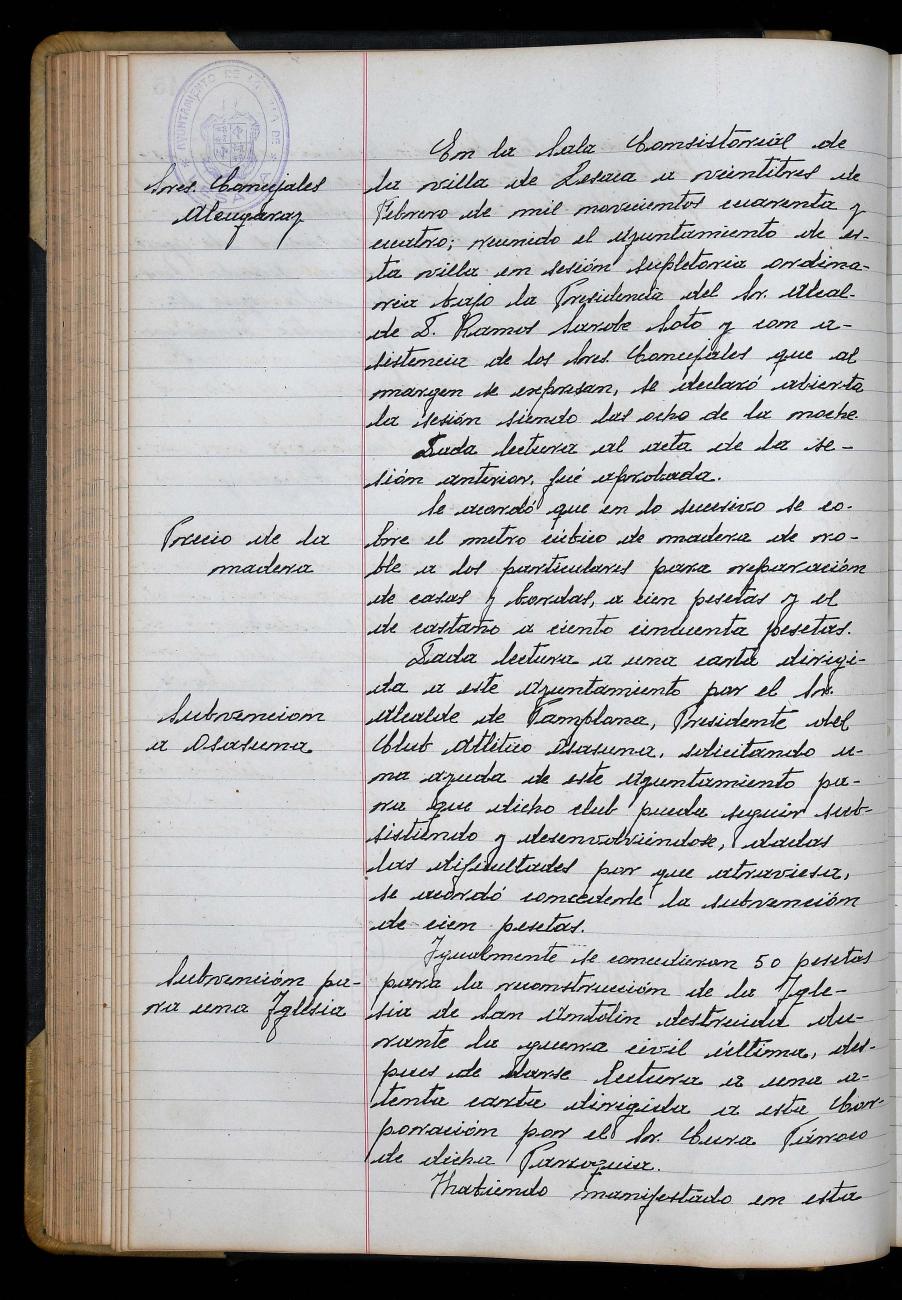 AYUNTAMIENTO DE LA VILLA DE LESACA
Sres. Concejales
Alcugaray
En la Sala Consistorial de
la villa de Lesaca a veintitres de
Febrero de mil novecientos cuarenta y
cuatro; reunido el Ayuntamiento de es-
ta villa en sesión supletoria ordina-
ria bajo la Presidencia del Sr. Alcal-
de D. Ramos Sarobe Soto y con a-
sistencia de los Sres. Concejales que al
margen se expresan, se declaró abierta
la sesión siendo las ocho de la noche.
Dada lectura al acta de la se-
sión anterior, fué aprobada.
Precio de la
madera
Se acordó que en lo sucesivo se co-
bre el metro cúbico de madera de ro-
ble a los particulares para reparación
de casas y bordas, a cien pesetas y el
de castaño a ciento cincuenta pesetas.
Subvencion
a Osasuna
Dada lectura a una carta dirigi-
da a este Ayuntamiento por el Sr.
Alcalde de Pamplona, Presidente del
Club Atlético Osasuna, solicitando u-
na ayuda de este Ayuntamiento pa-
ra que dicho club pueda seguir sub-
sistiendo y desenvolviéndose, dadas
las dificultades por que atraviesa,
se acordó concederle la subvención
de cien pesetas.
Subvención pa-
ra una Iglesia
Igualmente se concedieron 50 pesetas
para la reconstrucción de la Igle-
sia de San Antolin destruida du-
rante la guerra civil última, des-
pues de darse lectura a una a-
tenta carta dirigida a esta Cor-
poración por el Sr. Cura Párroco
de dicha Parroquia.
Habiendo manifestado en esta